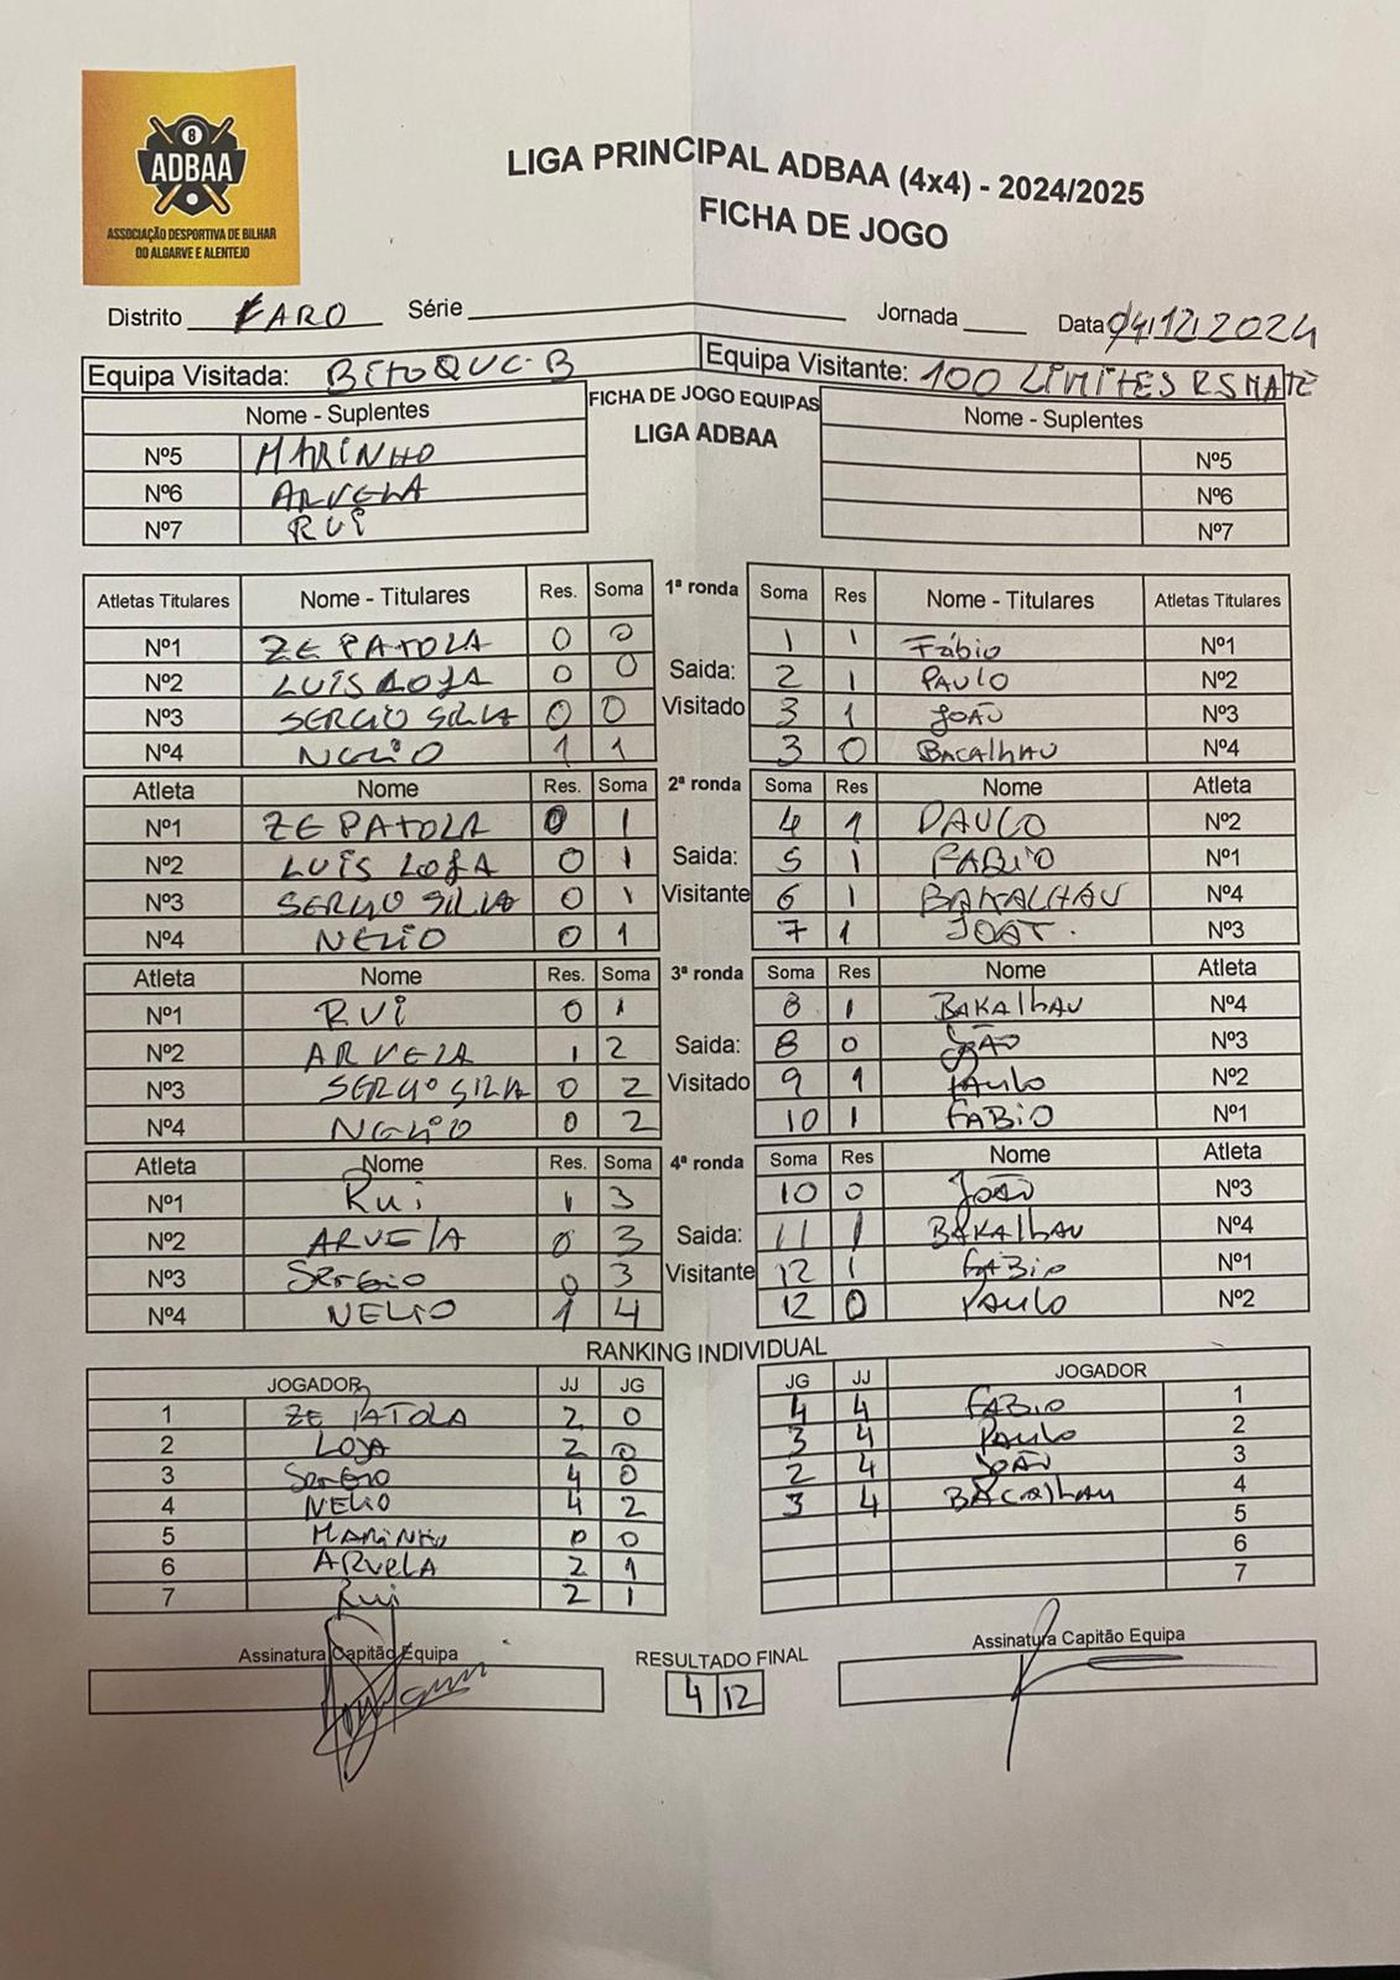 8
ADBAA
ASSOCIAÇÃO DESPORTIVA DE BILHAR
DO ALGARVE E ALENTEJO
LIGA PRINCIPAL ADBAA (4x4) - 2024/2025
FICHA DE JOGO
Distrito FARO Série Jornada Data 04/12/2024
Equipa Visitada: BITOQUE-B Equipa Visitante: 100 LIMITES RSMATE
Nome - Suplentes FICHA DE JOGO EQUIPAS Nome - Suplentes
LIGA ADBAA
Nº5 MARINHO Nº5
Nº6 ARVELA Nº6
Nº7 RUI Nº7
Atletas Titulares Nome - Titulares Res. Soma 1ª ronda Soma Res Nome - Titulares Atletas Titulares
Nº1 ZE PATOLA 0 0 1 1 Fábio Nº1
Nº2 LUIS LOJA 0 0 Saida: 2 1 PAULO Nº2
Nº3 SERGIO SILVA 0 0 Visitado 3 1 JOÃO Nº3
Nº4 NELIO 1 1 3 0 BACAlhAU Nº4
Atleta Nome Res. Soma 2ª ronda Soma Res Nome Atleta
Nº1 ZE PATOLA 0 1 4 1 PAULO Nº2
Nº2 LUIS LOJA 0 1 Saida: 5 1 FABIO Nº1
Nº3 SERGIO SILVA 0 1 Visitante 6 1 BAKALHAU Nº4
Nº4 NELIO 0 1 7 1 Nº3
Atleta Nome Res. Soma 3ª ronda Soma Res Nome Atleta
Nº1 RUI 0 1 8 1 BAKAlhAU Nº4
Nº2 ARVELA 1 2 Saida: 8 0 JOÃO Nº3
Nº3 SERGIO SILVA 0 2 Visitado 9 1 PAulo Nº2
Nº4 NELIO 0 2 10 1 FABIO Nº1
Atleta Nome Res. Soma 4ª ronda Soma Res Nome Atleta
Nº1 Rui 1 3 10 0 João Nº3
Nº2 ARVElA 0 3 Saida: 11 1 BAKAlhAU Nº4
Nº3 SerGio 0 3 Visitante 12 1 FABio Nº1
Nº4 NELIO 1 4 12 0 PAulo Nº2
RANKING INDIVIDUAL
JOGADOR JJ JG JG JJ JOGADOR
1 ZE PATOLA 2 0 4 4 FABIO 1
2 LOJA 2 0 3 4 PAulo 2
3 SerGio 4 0 2 4 JOÃO 3
4 NELIO 4 2 3 4 BACAlhAu 4
5 MARINHO 0 0 5
6 ARVELA 2 1 6
7 Rui 2 1 7
Assinatura Capitão Equipa RESULTADO FINAL Assinatura Capitão Equipa
4 12